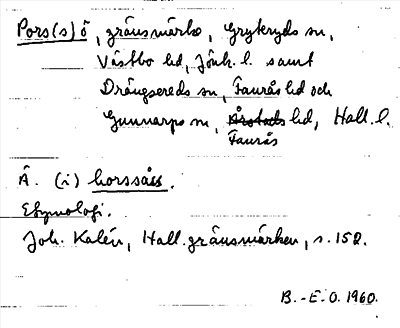 Pors(s)ö, gränsmärke, Gryteryds sn,
Västbo hd, Jönk. l. samt
Drängsereds sn, Faurås hd och
Gunnarps sn, Årstads hd, Hall. l.
Faurås
Ä. (i) horssåss.
Etymologi.
Joh. Kalén, Hall. gränsmärken, s. 152.
B.-E.O. 1960.